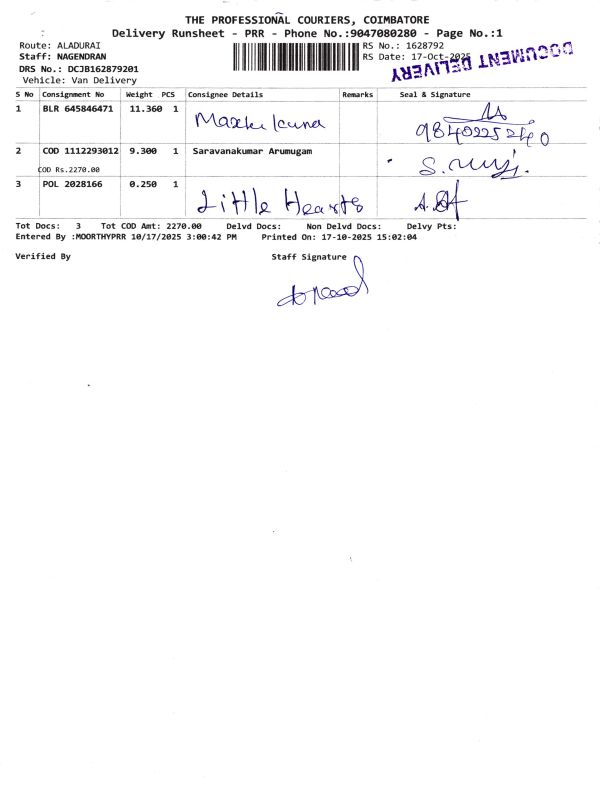 THE PROFESSIONAL COURIERS, COIMBATORE
Delivery Runsheet - PRR - Phone No.:9047080280 - Page No.:1
Route: ALADURAI RS No.: 1628792
Staff: NAGENDRAN RS Date: 17-Oct-2025
DRS No.: DCJB162879201
DOCUMENT DELIVERY
Vehicle: Van Delivery
S No Consignment No Weight PCS Consignee Details Remarks Seal & Signature
1 BLR 645846471 11.360 1
2 COD 1112293012 9.300 1 Saravanakumar Arumugam
COD Rs.2270.00
3 POL 2028166 0.250 1 Little Hearts
Tot Docs: 3 Tot COD Amt: 2270.00 Delvd Docs: Non Delvd Docs: Delvy Pts:
Entered By :MOORTHYPRR 10/17/2025 3:00:42 PM Printed On: 17-10-2025 15:02:04
Verified By Staff Signature